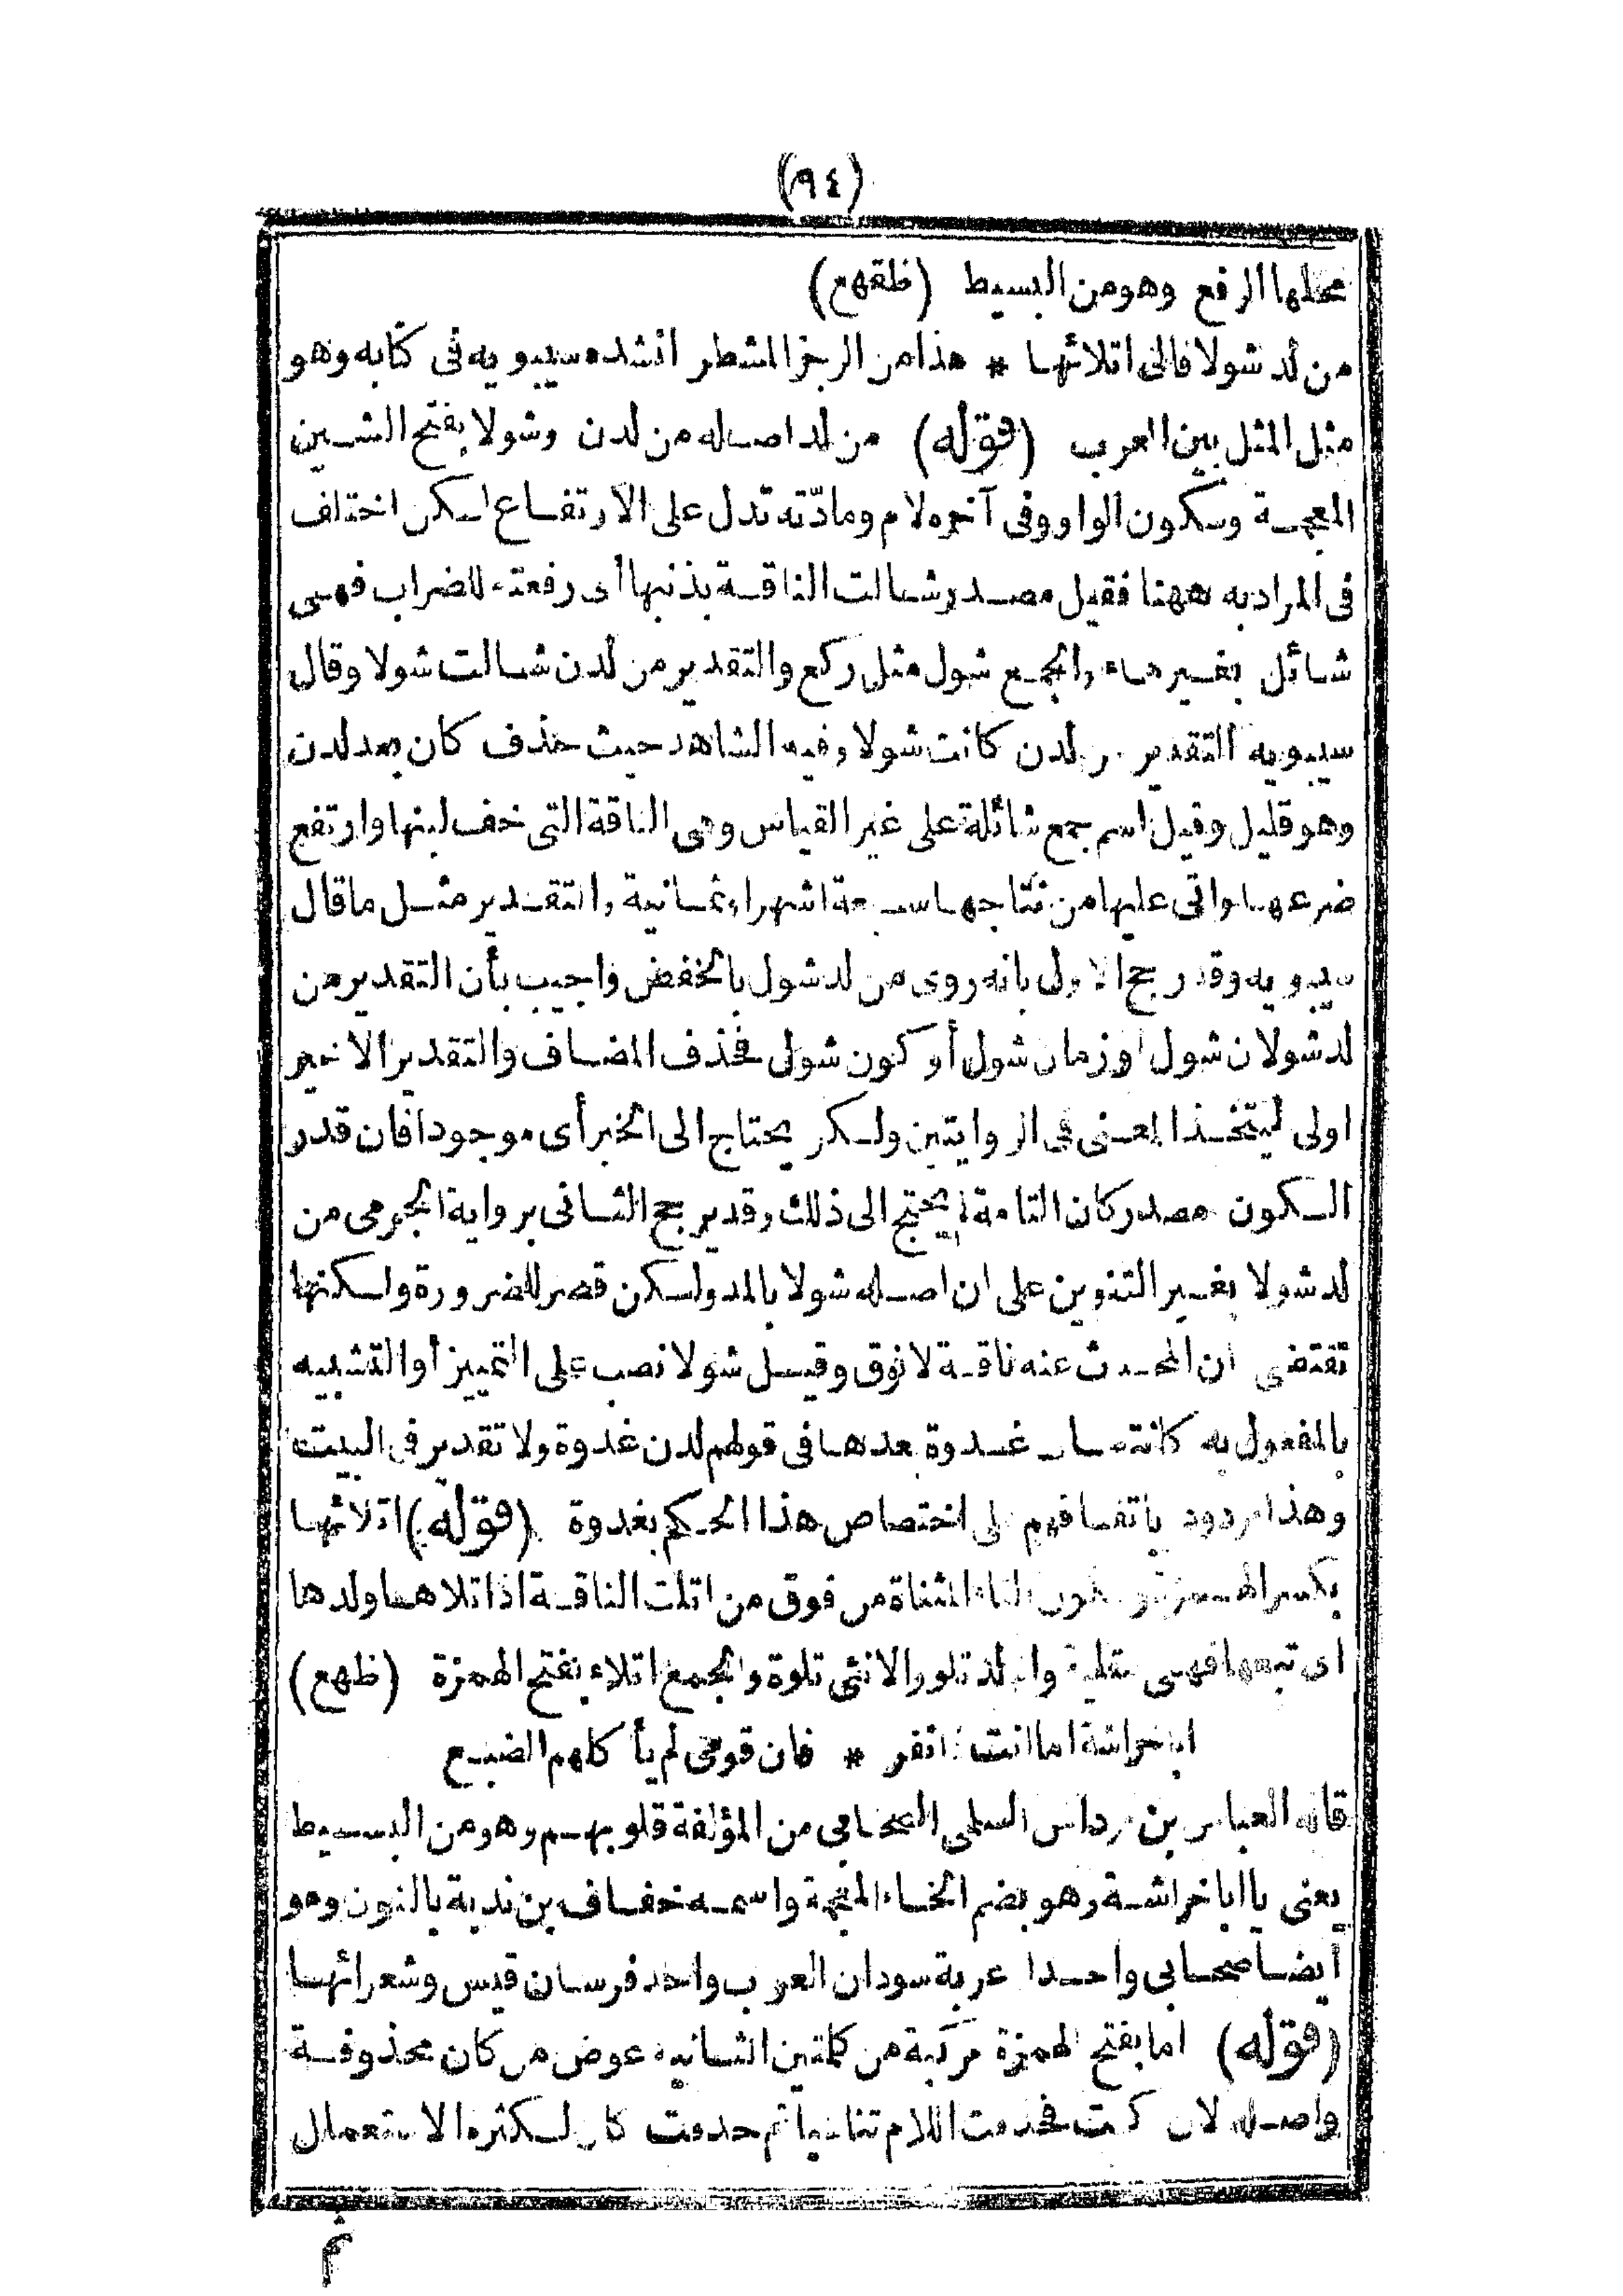 (٩٤)
محلها الرفع وهو من البسيط (ظقهع)
من لد شولا فالى اتلائها * هذا من الرجز المشطر انشده سيبويه فى كتابه وهو
مثل المثل بين العرب (قوله) من لد اصله من لدن وشولا بفتح الشين
المعجمة وسكون الواو وفى آخره لام ومادّته تدل على الارتفاع لكن اختلف
فى المراد به ههنا فقيل مصدر شالت الناقة بذنبها أى رفعته للضراب فهى
شائل بغير هاء والجمع شول مثل ركع والتقدير من لدن شالت شولا وقال
سيبويه التقدير من لدن كانت شولا وفيه الشاهد حيث حذف كان بعد لدن
وهو قليل وقيل اسم جمع شائلة على غير القياس وهى الناقة التى خف لبنها وارتفع
ضرعها واتى عليها من نتاجها سبعة اشهر او ثمانية والتقدير مثل ما قال
سيبويه وقد رجح الاول بانه روى من لد شول بالخفض واجيب بأن التقدير من
لد شولان شول او زمان شول أو كون شول فحذف المضاف والتقدير الاخير
اولى ليتحد المعنى فى الروايتين ولكن يحتاج الى الخبر أى موجودا فان قدر
الكون مصدر كان التامة لم يحتج الى ذلك وقد يرجح الثانى برواية الجرمى من
لد شولا بغير التنوين على ان اصله شولا بالمد ولكن قصر للضرورة ولكنها
تقتضى ان المحدث عنه ناقة لا نوق وقيل شولا نصب على التمييز أو التشبيه
بالمفعول به كانتصاب غدوة بعدها فى قولهم لدن غدوة ولا تقدير فى البيت
وهذا مردود باتفاقهم على اختصاص هذا الحكم بغدوة (قوله) اتلائها
بكسر الهمزة وسكون التاء المثناة من فوق من اتلت الناقة اذا تلاها ولدها
اى تبعها فهى متلية والولد تلو والانثى تلوة والجمع اتلاء بفتح الهمزة (ظهع)
ابا خراشة اما انت ذا نفر * فان قومى لم يأكلهم الضبع
قاله العباس بن مرداس السلمى الصحابى من المؤلفة قلوبهم وهو من البسيط
يعنى يا ابا خراشة وهو بضم الخاء المعجمة واسمه خفاف بن ندبة بالنون وهو
أيضا صحابى واحد اغربة سودان العرب واحد فرسان قيس وشعرائها
(قوله) اما بفتح الهمزة مركبة من كلمتين الثانية عوض من كان محذوفة
واصله لان كنت فحذفت اللام تناسيا ثم حذفت كان لكثرة الاستعمال
ثم